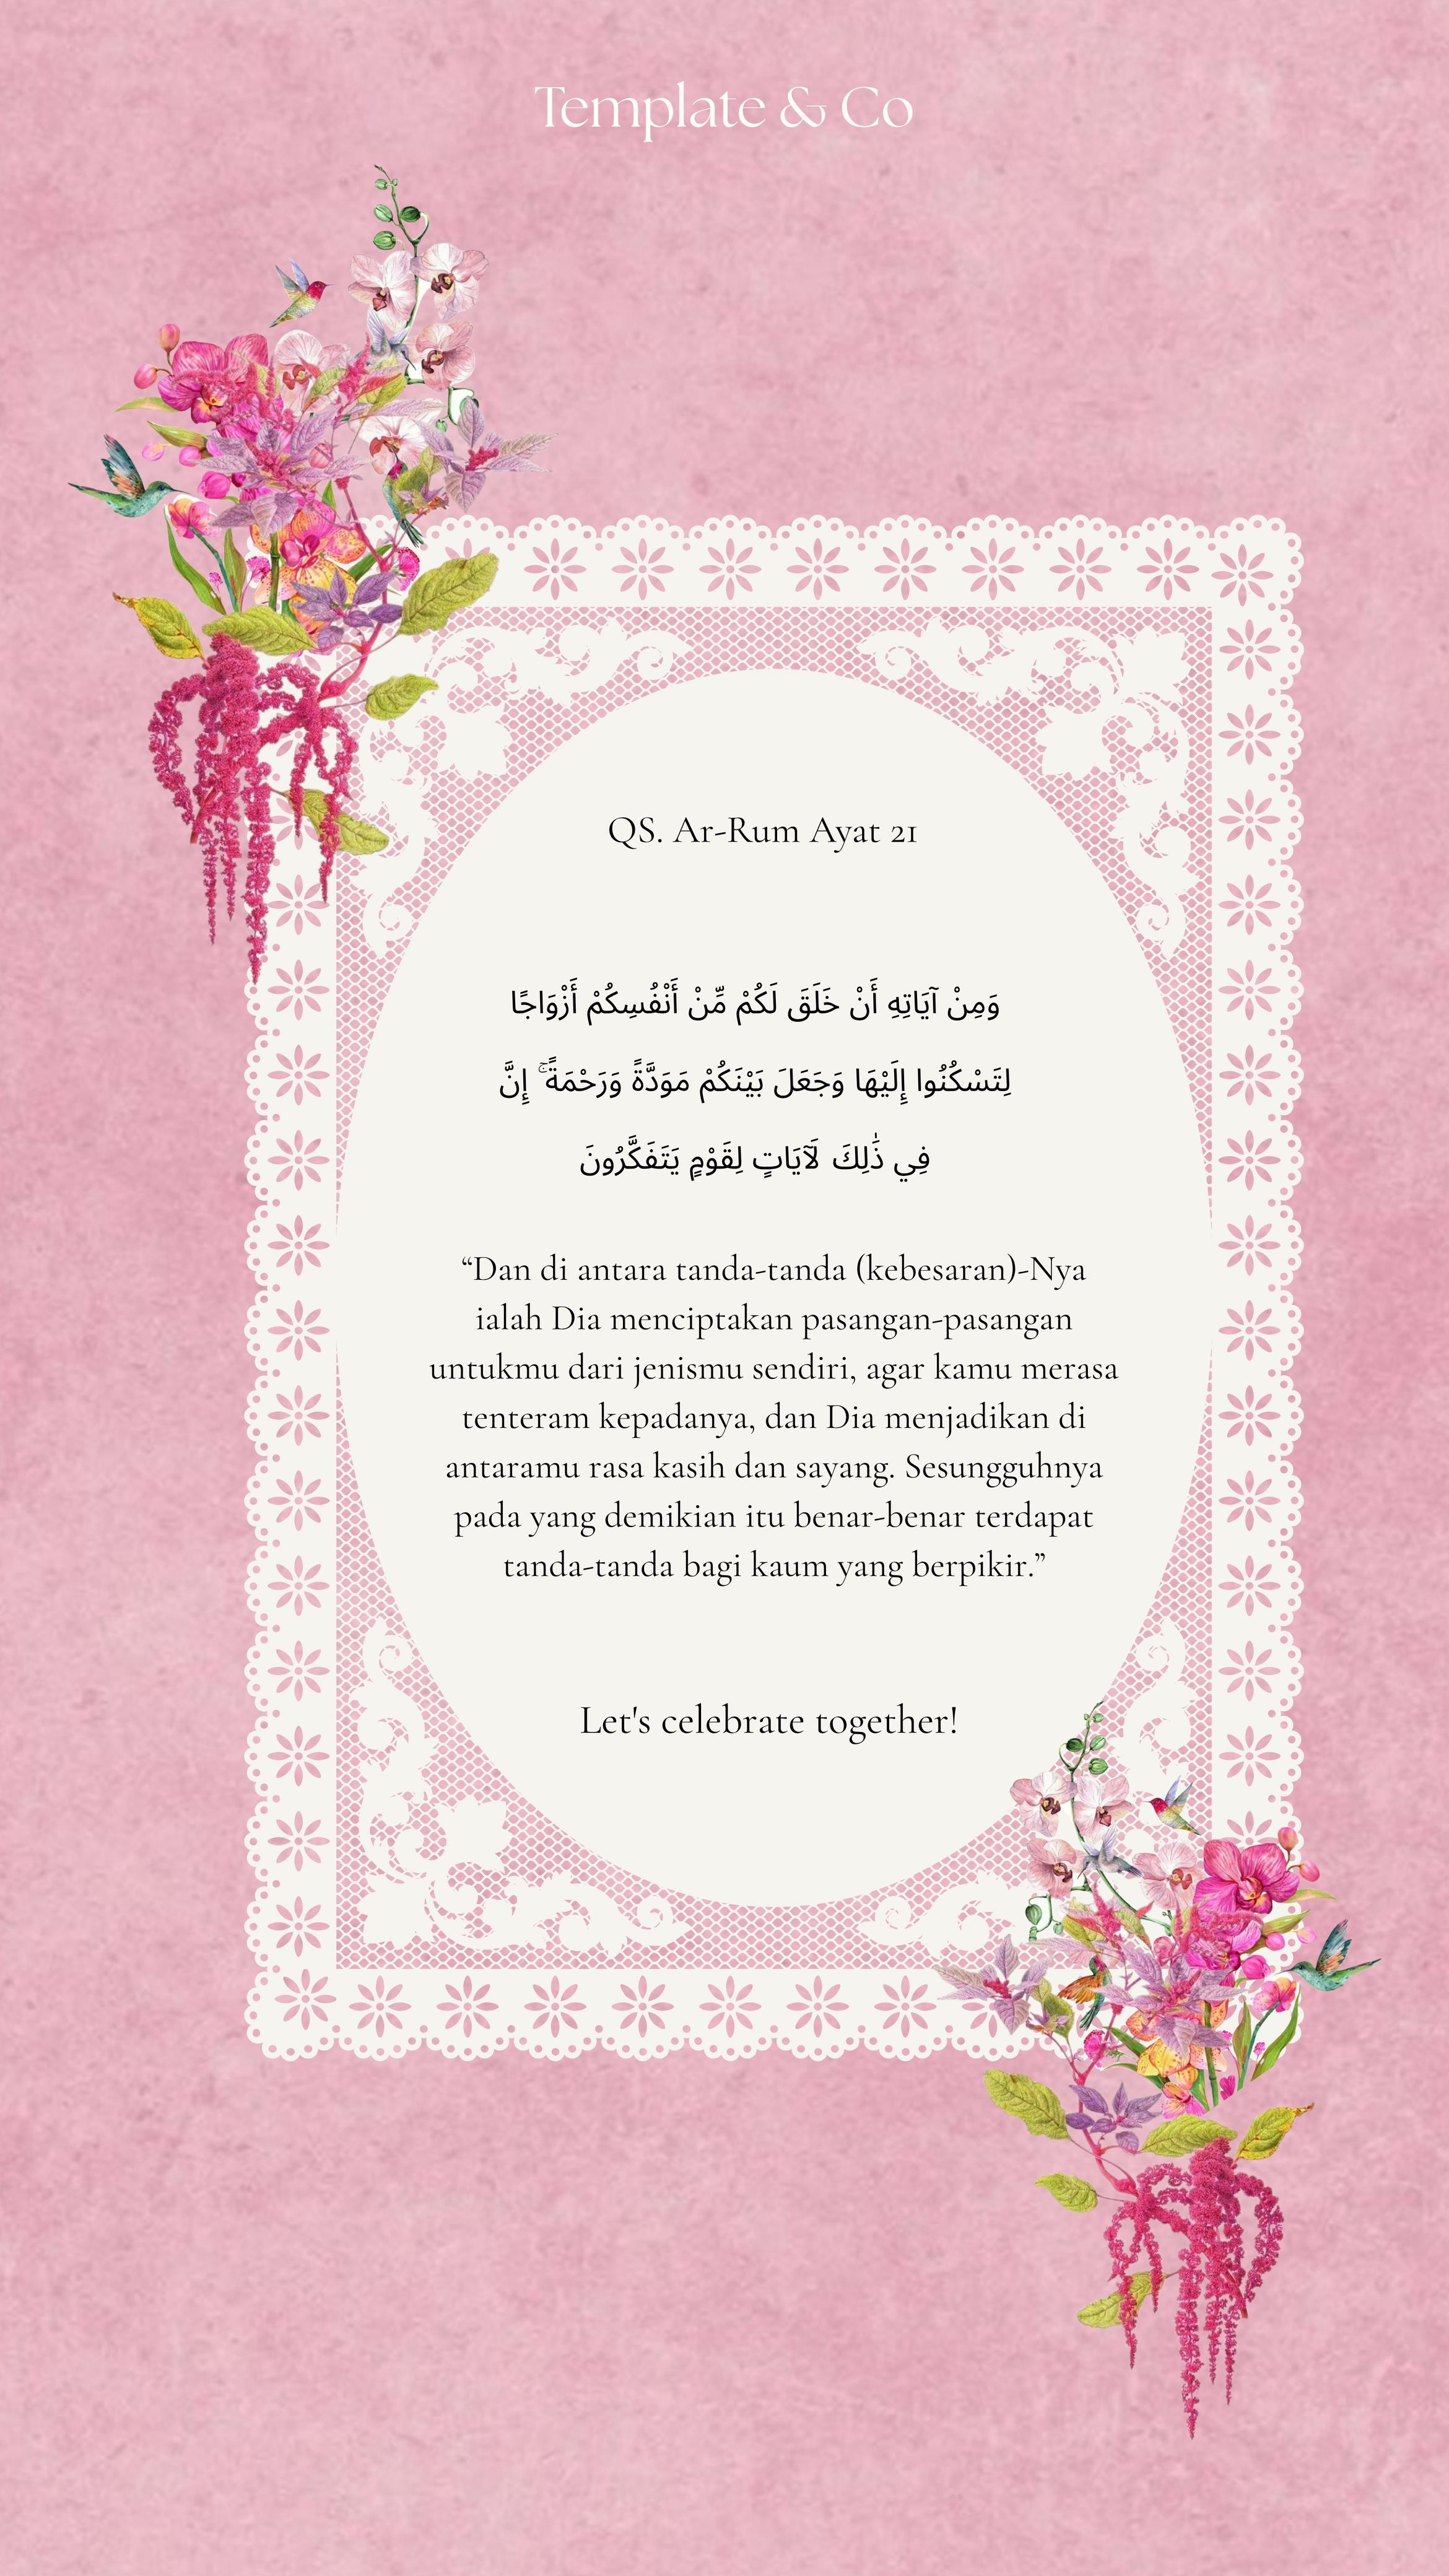 Template & Co
QS. Ar-Rum Ayat 21
وَمِنْ آيَاتِهِ أَنْ خَلَقَ لَكُمْ مِّنْ أَنْفُسِكُمْ أَزْوَاجًا
لِتَسْكُنُوا إِلَيْهَا وَجَعَلَ بَيْنَكُمْ مَوَدَّةً وَرَحْمَةً ۚ إِنَّ
فِي ذَٰلِكَ لَآيَاتٍ لِقَوْمٍ يَتَفَكَّرُونَ
“Dan di antara tanda-tanda (kebesaran)-Nya
ialah Dia menciptakan pasangan-pasangan
untukmu dari jenismu sendiri, agar kamu merasa
tenteram kepadanya, dan Dia menjadikan di
antaramu rasa kasih dan sayang. Sesungguhnya
pada yang demikian itu benar-benar terdapat
tanda-tanda bagi kaum yang berpikir.”
Let's celebrate together!